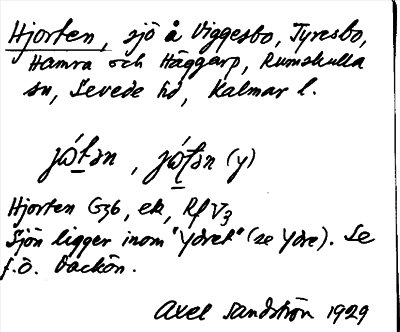 Hjorten, sjö å Viggesbo, Tyresbo,
Hamra och Häggarp, Rumskulla
sn, Sevede hd, Kalmar l.
Hjorten G36, ek, Rf V3
Sjön ligger inom "Ydret" (se Ydre). Se
f.ö. Backön.
Axel Sandström 1929